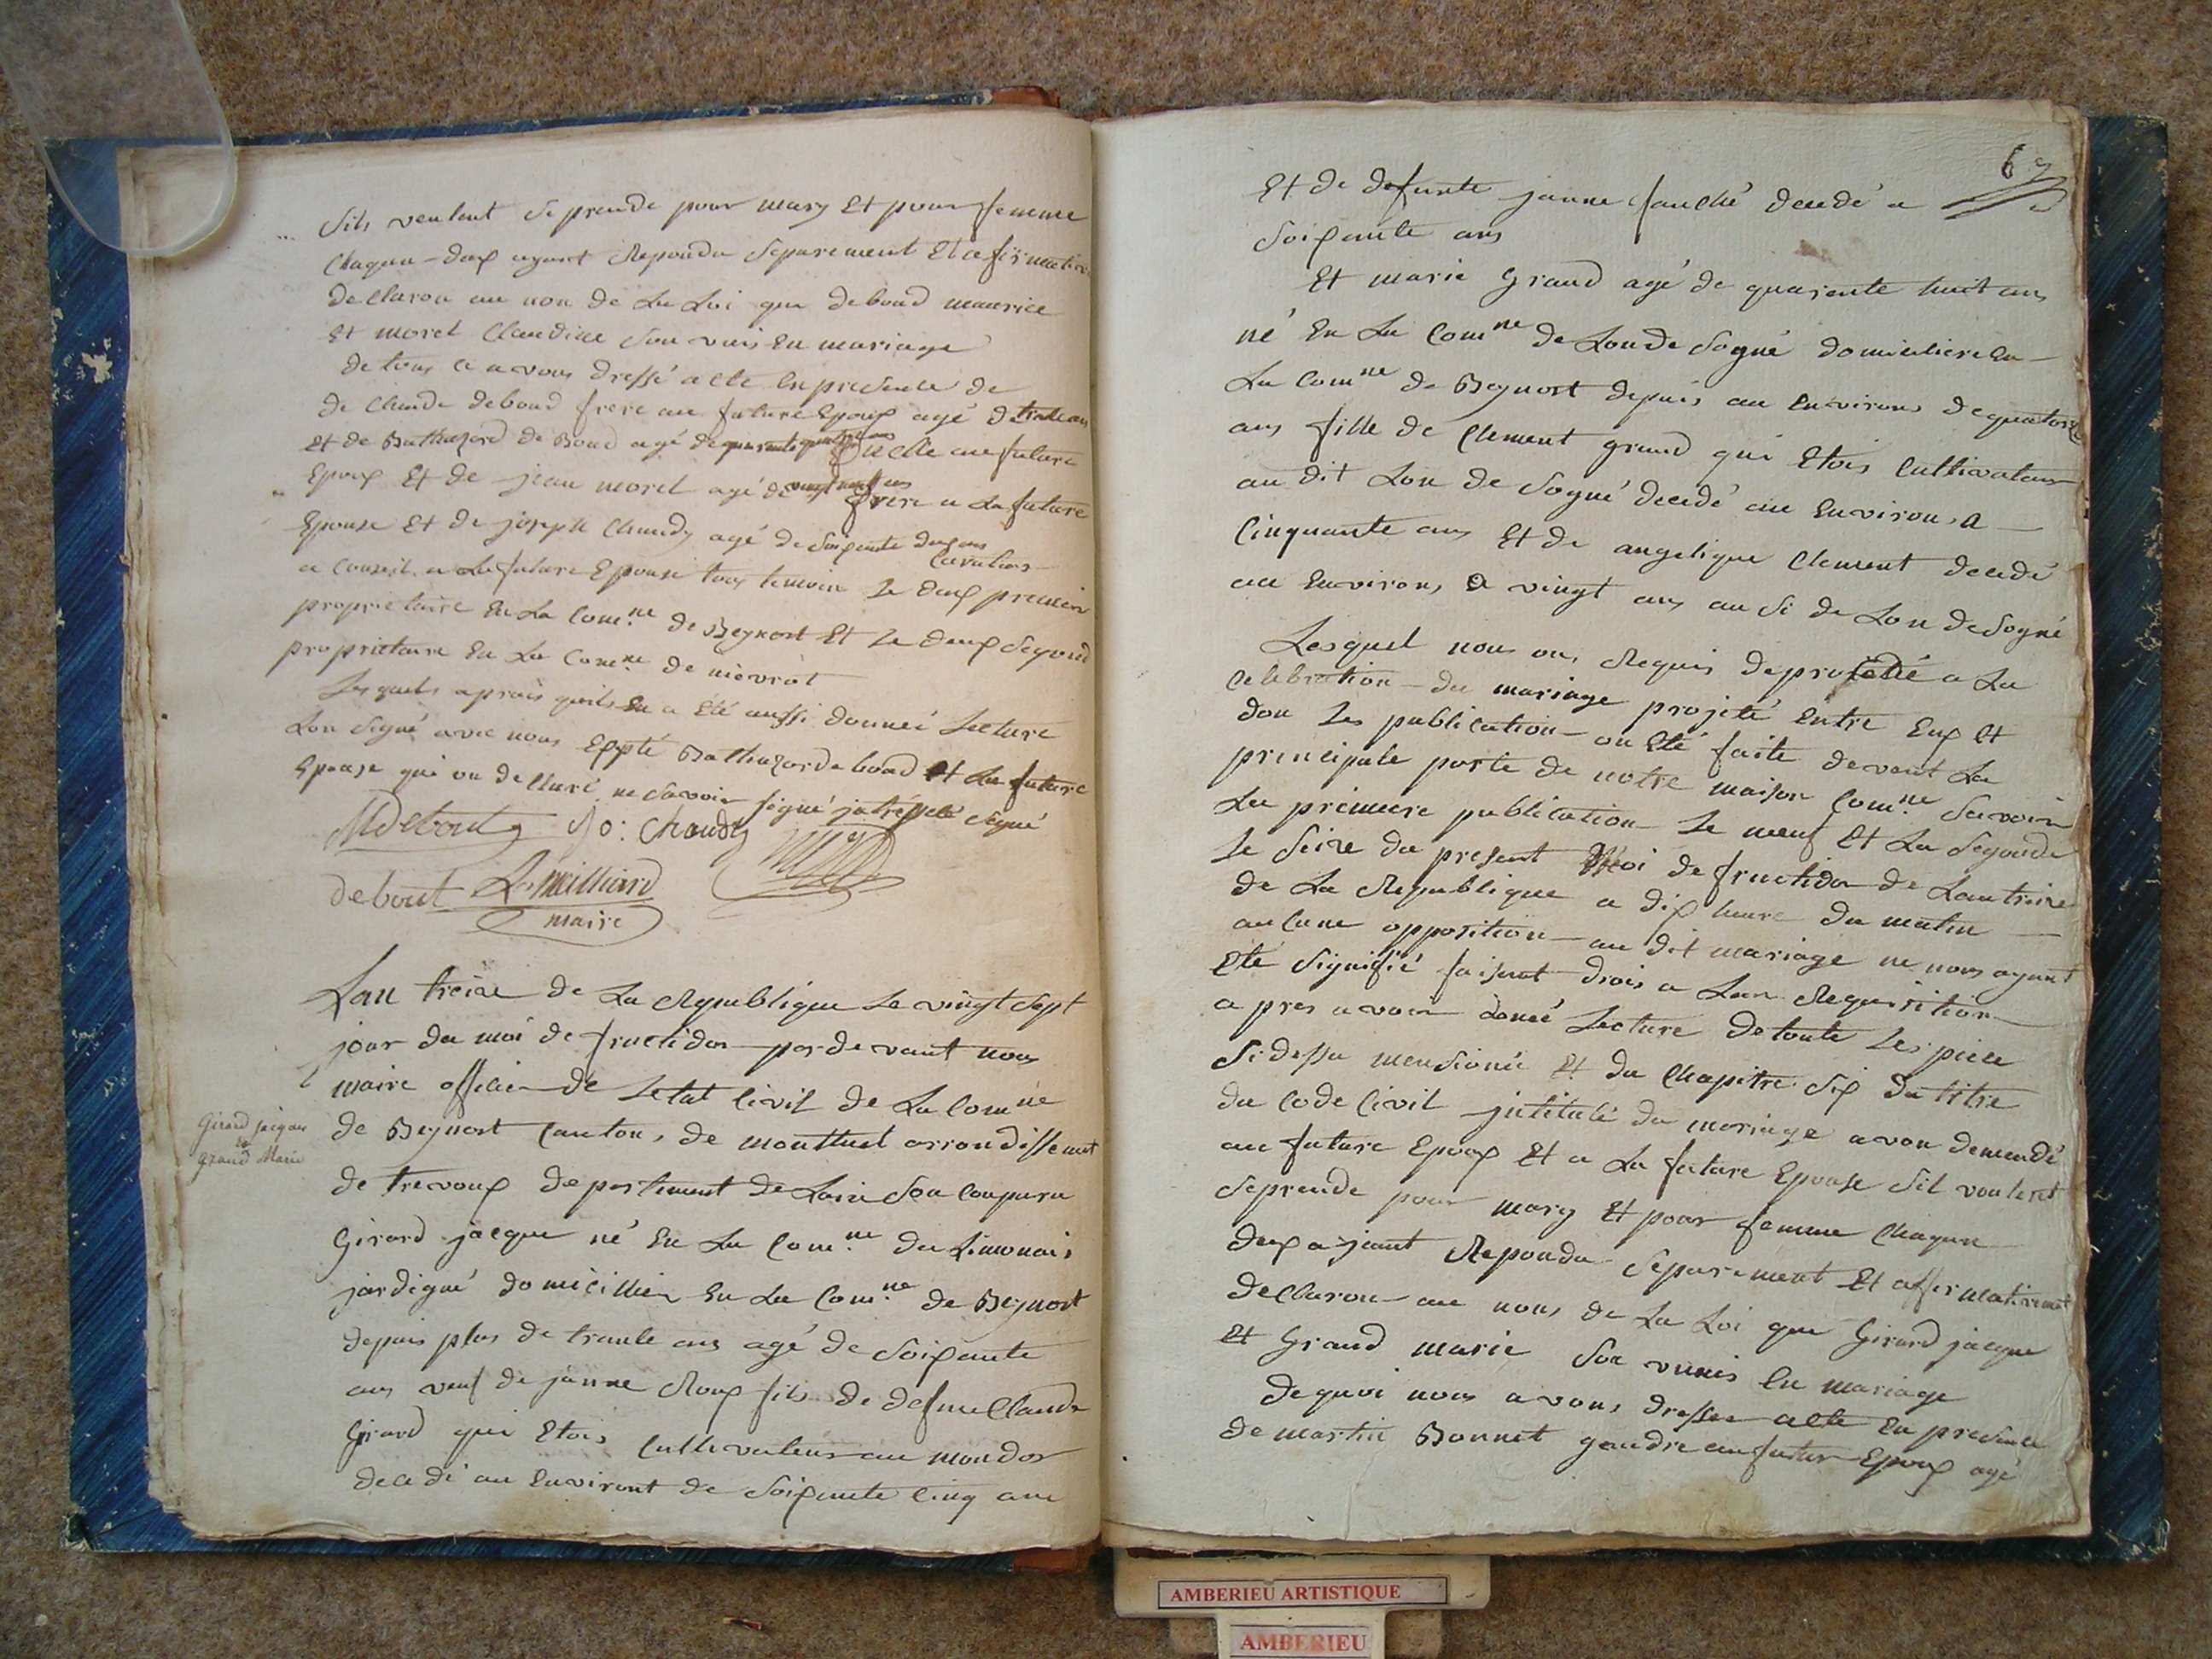 Sils veulent se prende pour mary Et pour femme
Chaqun deux ayant Repondu Separement Et afirmative
declaron au non de La Loi que deboud maurice
Et morel Claudine Son unis En mariage
de tous ce avons dressé acte En presence de
de Claude deboud frere au future Epoux agé de trente ans
Et de Balthazard de Boud agé de quarente quatre ans oncle au future
Epoux Et de jean morel agé de vingt neuf ans frere a La future
Epouse Et de joseph Chaudy agé de Soixente deux ans
a Conseil a La future Epouse tous temoin Le deux premier
proprietaire En La Comne de Beynost Et Le deux Segond
proprietaire En La Comne de nièvrôt
Lesquels aprais quils En a Eté aussi donneé Lecture
Lon Signé avec nous Epté Balthazar de boud Et La future
Epouse qui on declaré ne Savoir Signé
Mdeboud Jo: Chaudy
debout L. Milliard
maire
Lan treize de La Republique Le vingt Sept
jour du moi de fructidor par devant nous
maire officier de Letat Civil de La Comne
Girard jacque
et
grand Marie
de Beynost Canton, de montluel arrondissement
de trevoux departement de Lain Son Conparu
Girard jacque né En La Comne du Limonais
jardigné domicillier En La Comne de Beynost
depuis plus de trante ans agé de Soixante
ans veuf de janne Roux fils de defun Claude
Girard qui Etois Cultivateur au mondor
decedé au Environt de Soixente Cinq ans
67
Et de defunte janne fauché decedé a
Soixante ans
Et marie Grand agé de quarente huit ans
né En La Comne de Lon de Sogné domicilieré En
La Comne de Beynost depuis au Environs de quatorze
ans fille de Clement grand qui Etois Cultivateur
au dit Lon de Sogné decedé au Environs a
Cinquante ans Et de angelique Clement decedé
au Environs a vingt ans au Si de Lon de Sogné
Lesquel nous on, Requis de procedé a La
Celebration du mariage projeté Entre Eux Et
don Les publication on Eté faite devant La
principale porte de notre maison Comne Savoir
La premiere publication Le neuf Et La Segonde
Le Seize du present Moi de fructidor de Lan treize
de La Republique a dix heure du matin
aucune opposition au dit mariage ne nous ayant
Eté Signifié faisant drois a Leur Requisition
apres avoir donné Lecture de toute Les piece
Si dessu mensionée Et du Chapitre Six du titre
du Code Civil jntitulé du mariage avon demendé
au future Epoux Et a La future Epouse Sil vouleret
Seprende pour mary Et pour femme Chaqun
deux ajant Repondu Separement Et affirmativement
declaron au nons de La Loi que Girard jacque
Et Grand marie Son vunis En mariage
de quoi nous avons dressee acte En presence
de martin Bonnet gendre au futur Epoux agé
AMBERIEU ARTISTIQUE
AMBERIEU